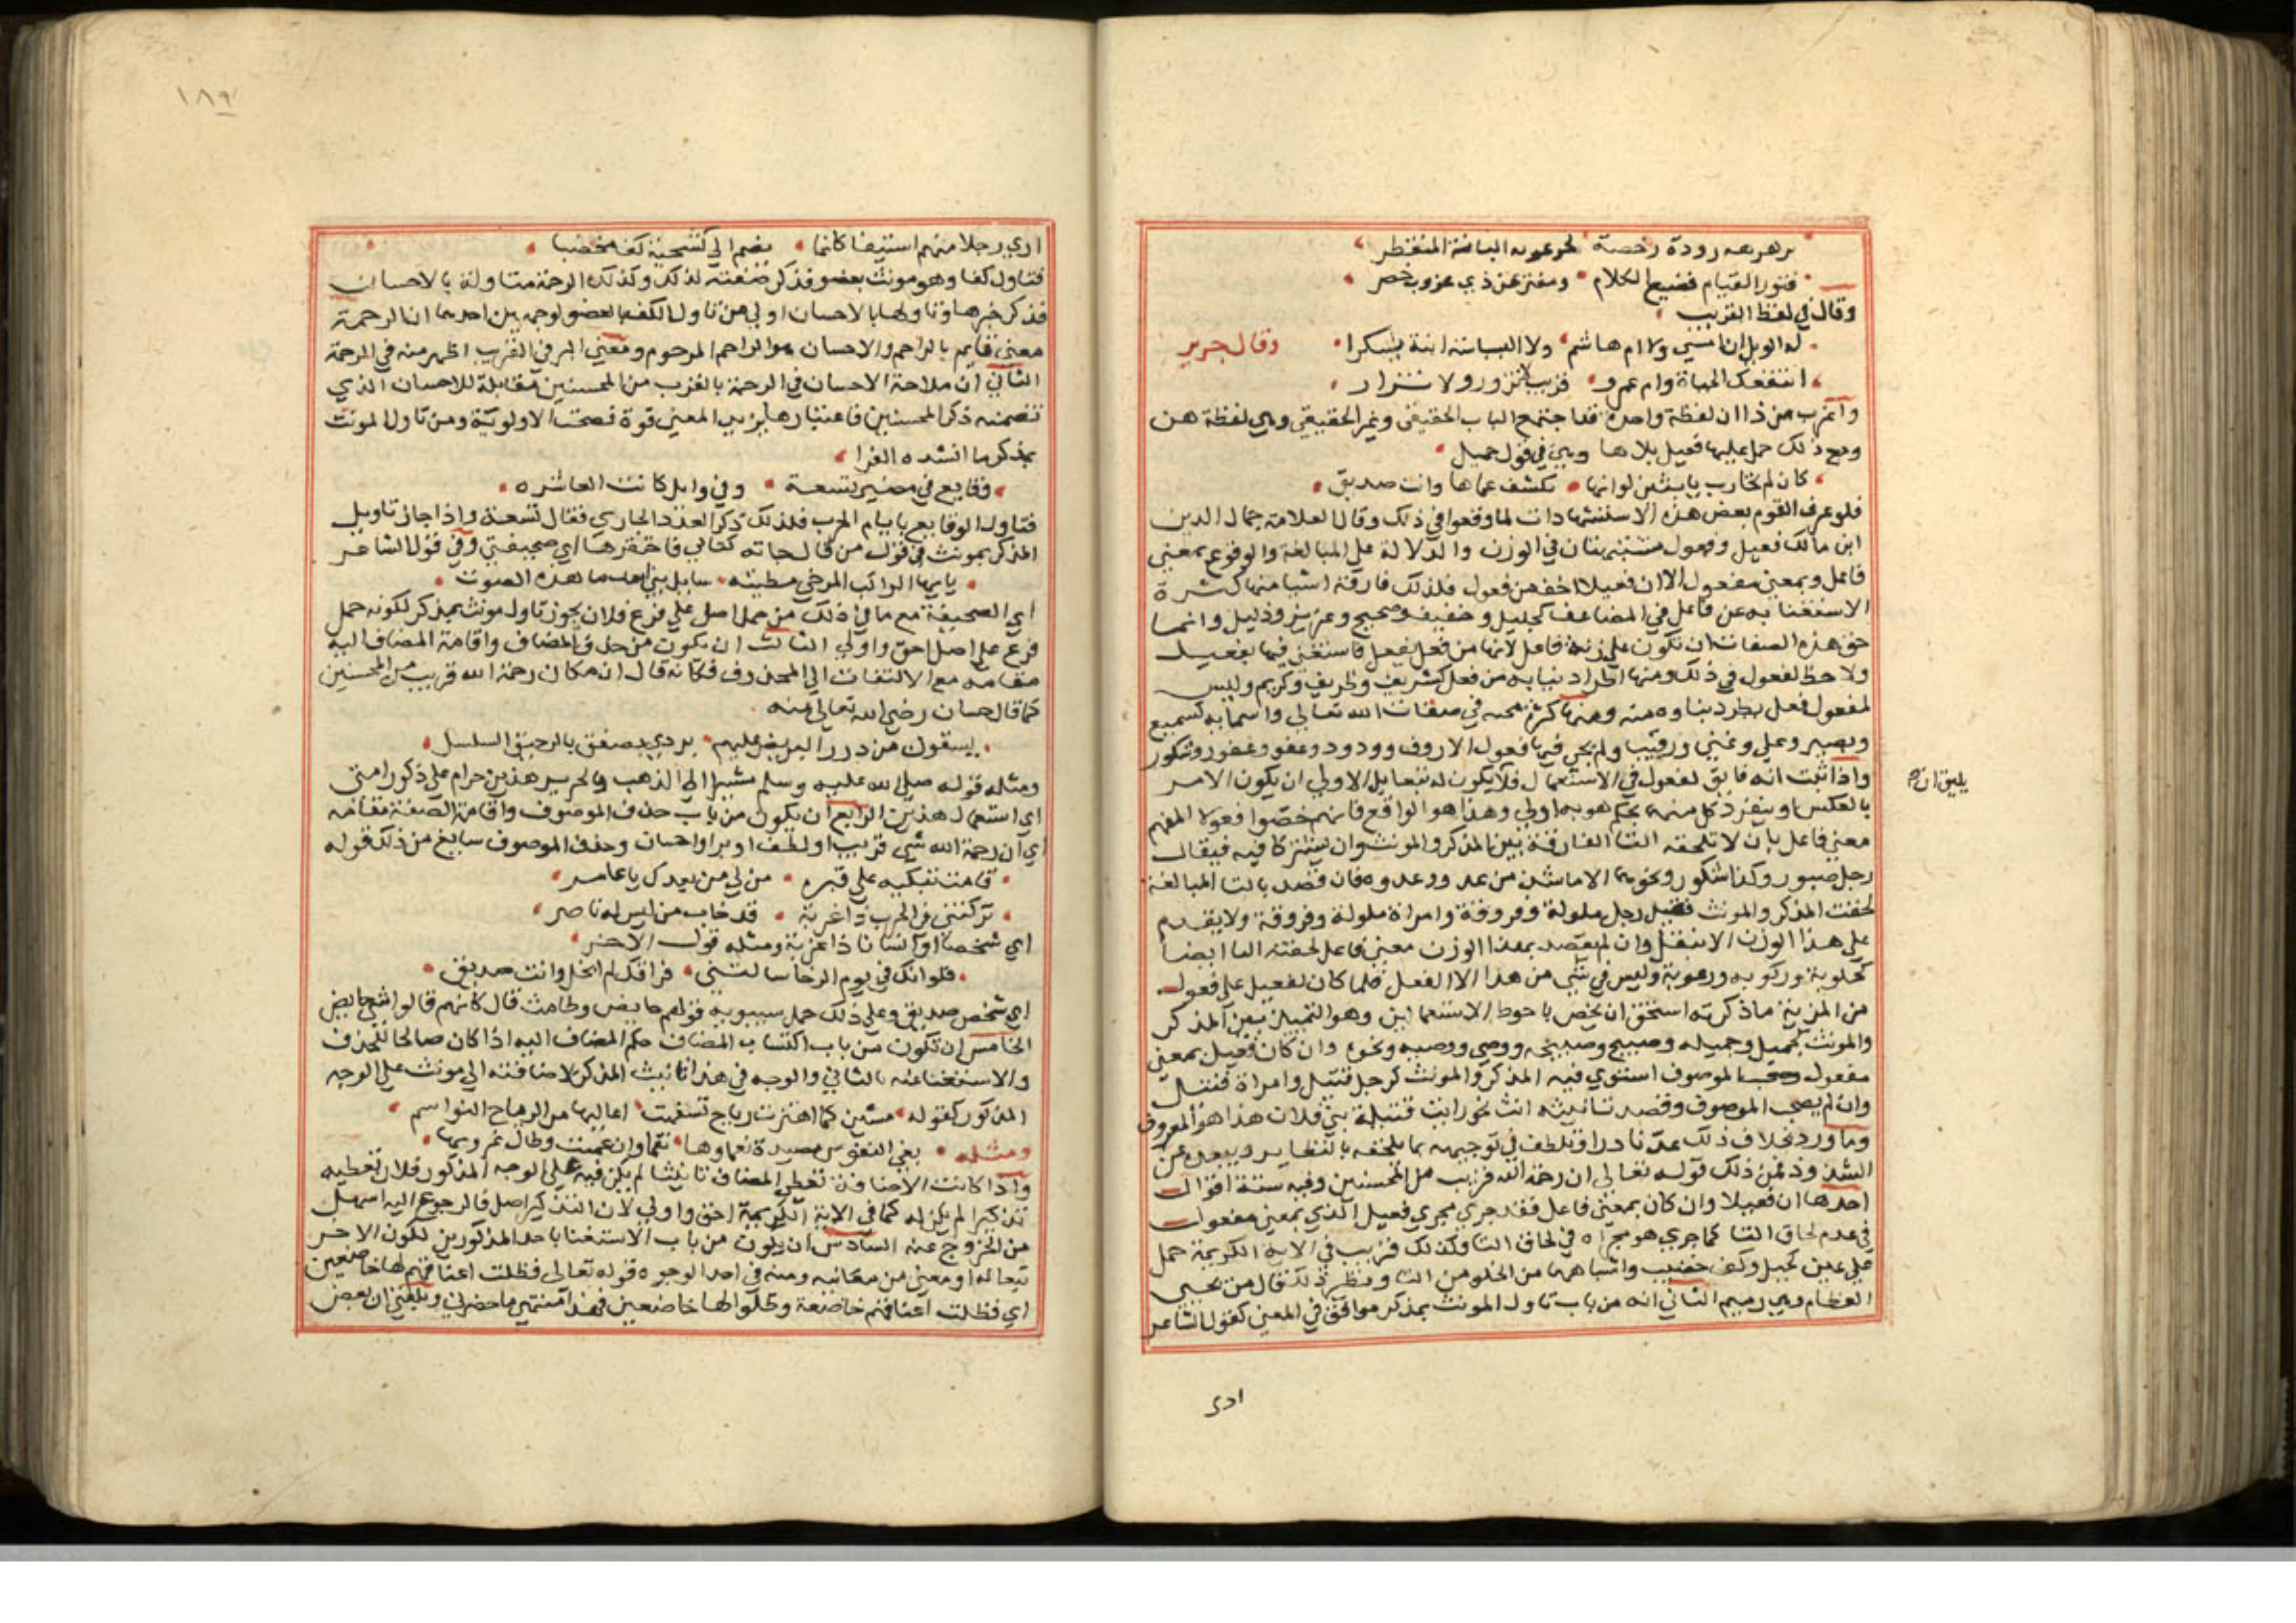 برهرهة رودة رخصة كخرعوبة البانة المنفطر
فتور القيام فصيح الكلام ومفتر عن ذي غروب خصر
وقال في لفظ القريب
له الويل ان امسي ولا ام هاشم ولا البسباسة ابنة يشكرا وقال جرير
اتنفعك الحياة وام عمرو قريب لا تزور ولا تزار
واغرب من ذا ان لفظة واحدة قد اجتمع الباب الحقيقي وغير الحقيقي وهي لفظة هن
ومع ذلك حمل عليها فعيل بلا ها وهي في قول جميل
كان لم نحارب يا بثين لو انها تكشف غماها وانت صديق
فلو عرف القوم بعض هذه الاستشهادات لما وقعوا في ذلك وقال العلامة جمال الدين
ابن مالك فعيل وفعول مشتبهتان في الوزن والدلالة على المبالغة والوقوع بمعني
فاعل وبمعني مفعول الا ان فعيلا اخف من فعول فلذلك فارقه اشيا منها كثرة
الاستغنا به عن فاعل في المضاعف كجليل وخفيف وصحيح وعزيز وذليل وانما
حق هذه الصفات ان تكون على زنة فاعل لانها من فعل يفعل فاستغني فيها بفعيل
ولا حظ لفعول في ذلك ومنها اطراد بنايه من فعل كشريف وظريف وكريم وليس
لفعول فعل يطرد بناوه منه ومنها كثرة مجيه في صفات الله تعالي واسمايه كسميع
وبصير وعلي وغني ورقيب ولم يجي فيها فعول الا روف وودود وعفو وغفور وشكور
واذا ثبت انه فايق لفعول في الاستعمال فلا يكون له تبعا بل الاولي ان يكون الامر
يليق ان
بالعكس او ينفرد كل منهما بحكم هو به اولي وهذا هو الواقع فانهم خصوا فعولا المفهم
معني فاعل بان لا تلحقه التا الفارقة بين المذكر والمونث وان يشتركا فيه فيقال
رجل صبور وكذا شكور ونحوهما الا ما شذ من عد ووعدوه فان قصد بالتا المبالغة
لحقت المذكر والمونث فقيل رجل ملولة وفروقة وامراة ملولة وفروقة ولا يقدم
على هذا الوزن الا بنقل وان لم يقصد بهذا الوزن معني فاعل لحقته التا ايضا
كحلوبة وركوبه ورغوبة وليس في شي من هذا الا الفعل فلما كان لفعيل على فعول
من المزية ما ذكرته استحق ان يخص باحوط الاستعمالين وهو التمييز بين المذكر
والمونث كجميل وجميله وصبيح وصبيحه ووصي ووصيه ونحوه وان كان فعيل بمعني
مفعول وصحب الموصوف استوي فيه المذكر والمونث كرجل قتيل وامراة قتيل
وان لم يصحب الموصوف وقصد تانيثه انث نحو رايت قتيلة بني فلان هذا هو المعروف
وما ورد بخلاف ذلك عد نادرا وتلطف في توجيهه بما يلحقه بالنظاير ويبعده عن
الشذوذ فمن ذلك قوله تعالي ان رحمة الله قريب من المحسنين وفيه ستة اقوال
احدها ان فعيلا وان كان بمعني فاعل فقد جري مجري فعيل الذي بمعني مفعول
في عدم لحاق التا كما جري هو مجراه في لحاق التا وكذلك قريب في الاية الكريمة حمل
على عين كحيل وكف خضيب واشباههما من الخلو من التا ونظير ذلك قال من يحيي
العظام وهي رميم الثاني انه من باب تاول المونث بمذكر موافق في المعني كقول الشاعر
اري
١٨٩
اري رجلا منهم اسيفا كانما يضم الي كشحيه كفا مخضبا
فتاول كفا وهو مونث بعضو فذكر صفته لذلك وكذلك الرحمة متاولة بالاحسان
فذكر خبرها وتاولها بالاحسان اولي من تاول الكف بالعضو لوجهين احدهما ان الرحمة
معني قايم بالراحم والاحسان هو الراحم المرحوم ومعني البر في القريب اظهر منه في الرحمة
الثاني ان ملاحة الاحسان في الرحمة بالقرب من المحسنين مقابلة للاحسان الذي
تضمنه ذكر المحسنين فاعتبارها يزيد المعني قوة فصحت الاولوية ومن تاول المونث
بمذكر ما انشده الفرا
وقايع في مضر تسعة وفي وايل كانت العاشره
فتاول الوقايع بايام الحرب فلذلك ذكر العدد الجاري فقال تسعة واذا جاز تاويل
المذكر بمونث في قول من قال جاته كتابي فاحتقرها اي صحيفتي وفي قول الشاعر
يايها الراكب المزجي مطيته سايل بني اسد ما هذه الصوت
اي الصحيفة مع ما في ذلك من حمل اصل على فرع فلان يجوز تاول مونث بمذكر لكونه حمل
فرع على اصل احق واولي الثالث ان يكون من حذف المضاف واقامة المضاف اليه
مقامه مع الالتفات الي المحذوف فكانه قال ان مكان رحمة الله قريب من المحسنين
كما قال حسان رضي الله تعالي عنه
يسقون من ورد البريص عليهم بردي يصفق بالرحيق السلسل
ومثله قوله صلي الله عليه وسلم مشيرا الي الذهب والحرير هذين حرام على ذكور امتي
اي استعمال هذين الرابع ان يكون من باب حذف الموصوف واقامة الصفة مقامه
اي ان رحمة الله شي قريب او لطف او بر او احسان وحذف الموصوف سايغ من ذلك قوله
قامت تبكيه علي قبره من لي من بعدك يا عامر
تركتني في الحرب ذا غربة قد خاب من ليس له ناصر
اي شخصا او انسانا ذا غربة ومثله قول الاخر
فلو انك في يوم الرخا سالتني فراقك لم ابخل وانت صديق
اي شخص صديق وعلى ذلك حمل سيبويه قولهم حايض وطامث قال كانهم قالوا شي حايض
الخامس ان تكون من باب اكتساب المضاف حكم المضاف اليه اذا كان صالحا للحذف
والاستغنا عنه بالثاني والوجه في هذا تانيث المذكر لاضافته الي مونث على الوجه
المذكور كقوله مشين كما اهتزت رياح تسفهت اعاليها مر الرياح النواسم
ومثله بغي النفوس معيدة نعماوها نقما وان عمهت وطال غرورها
واذا كانت الاضافة تعطي المضاف تانيثا لم يكن فيه على الوجه المذكور فلان تعطيه
تذكيرا لم يكن له كما في الاية الكريمة احق واولي لان التذكير اصل فالرجوع اليه اسهل
من الخروج عنه السادس ان يكون من باب الاستغنا باحد المذكورين لكون الاخر
تبعا له او معني من معانيه ومنه في احد الوجوه قوله تعالي فظلت اعناقهم لها خاضعين
اي فظلت اعناقهم خاضعة وظلوا لها خاضعين فهذا منتهي ما حضرني وبلغني ان بعض